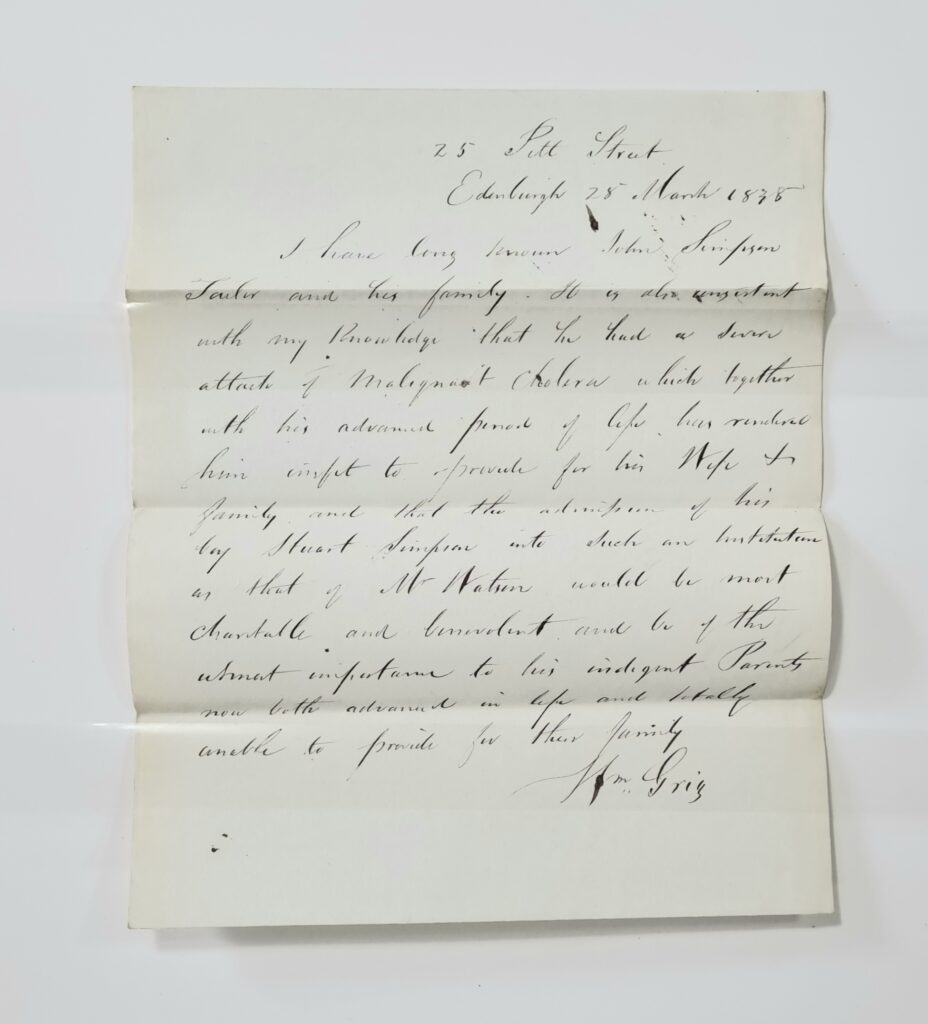 25 Pitt Street
Edenburgh 28 March 1838
I have long known John Simpson
Tailor and his family. It is also consistent
with my Knowledge that he had a severe
attack of Malignant Cholera which together
with his advanced period of life has rendered
him unfit to provide for his Wife &
family and that the admission of his
boy Stuart Simpson into such an Institution
as that of Mr Watson would be most
charitable and benevolent and be of the
utmost importance to his indigent Parents
now both advanced in life and totally
unable to provide for their family
Wm Grig